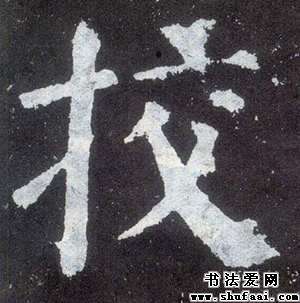 挍
书法爱网
www.shufaai.com